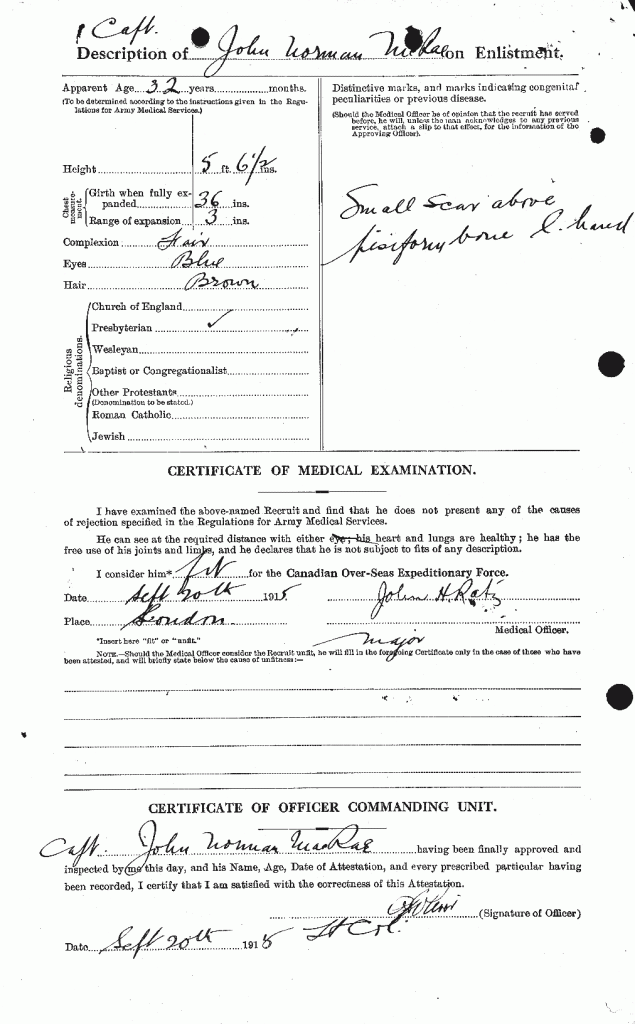 Capt.
Description of John Norman McRae on Enlistment.
Apparent Age 32 years months.
(To be determined according to the instructions given in the Regulations for Army Medical Services.)
Height 5 ft 6 1/2 ins.
Chest measurement.
Girth when fully expanded 36 ins.
Range of expansion 3 ins.
Complexion Fair
Eyes Blue
Hair Brown
Religious denominations.
Church of England
Presbyterian ✓
Wesleyan
Baptist or Congregationalist
Other Protestants
(Denomination to be stated.)
Roman Catholic
Jewish
Distinctive marks, and marks indicating congenital
peculiarities or previous disease.
(Should the Medical Officer be of opinion that the recruit has served
before, he will, unless the man acknowledges to any previous
service, attach a slip to that effect, for the information of the
Approving Officer).
Small scar above
pisiform bone L. hand
CERTIFICATE OF MEDICAL EXAMINATION.
I have examined the above-named Recruit and find that he does not present any of the causes
of rejection specified in the Regulations for Army Medical Services.
He can see at the required distance with either eye; his heart and lungs are healthy; he has the
free use of his joints and limbs, and he declares that he is not subject to fits of any description.
I consider him* fit for the Canadian Over-Seas Expeditionary Force.
Date Sept 20th 1915
John H Ratz
Place London
Medical Officer.
Major
*Insert here "fit" or "unfit."
NOTE.—Should the Medical Officer consider the Recruit unfit, he will fill in the foregoing Certificate only in the case of those who have
been attested, and will briefly state below the cause of unfitness:—
CERTIFICATE OF OFFICER COMMANDING UNIT.
Capt. John Norman MacRae having been finally approved and
inspected by me this day, and his Name, Age, Date of Attestation, and every prescribed particular having
been recorded, I certify that I am satisfied with the correctness of this Attestation.
(Signature of Officer)
Lt Col.
Date Sept 20th 1915